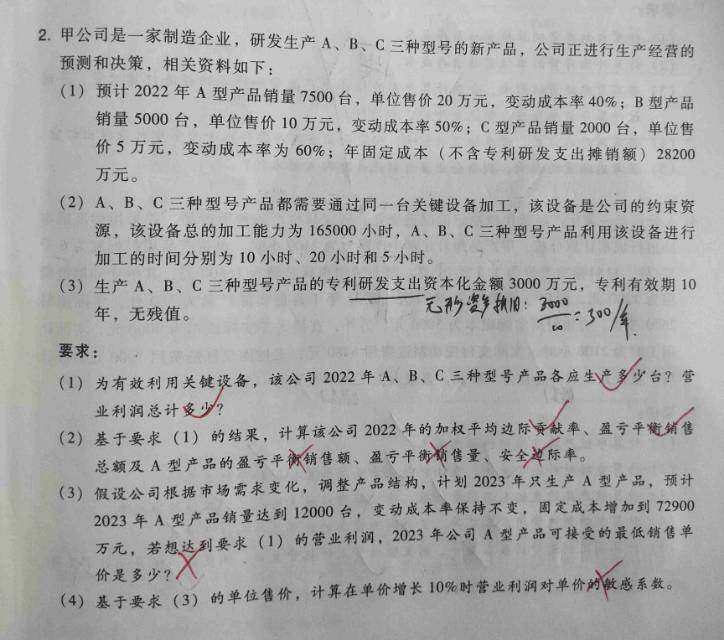 2. 甲公司是一家制造企业，研发生产 A、B、C 三种型号的新产品，公司正进行生产经营的
预测和决策，相关资料如下：
（1）预计 2022 年 A 型产品销量 7500 台，单位售价 20 万元，变动成本率 40%；B 型产品
销量 5000 台，单位售价 10 万元，变动成本率 50%；C 型产品销量 2000 台，单位售
价 5 万元，变动成本率为 60%；年固定成本（不含专利研发支出摊销额）28200
万元。
（2）A、B、C 三种型号产品都需要通过同一台关键设备加工，该设备是公司的约束资
源，该设备总的加工能力为 165000 小时，A、B、C 三种型号产品利用该设备进行
加工的时间分别为 10 小时、20 小时和 5 小时。
（3）生产 A、B、C 三种型号产品的专利研发支出资本化金额 3000 万元，专利有效期 10
年，无残值。
无形资产摊旧：3000/10=300/年
要求：
（1）为有效利用关键设备，该公司 2022 年 A、B、C 三种型号产品各应生产多少台？营
业利润总计多少？
（2）基于要求（1）的结果，计算该公司 2022 年的加权平均边际贡献率、盈亏平衡销售
总额及 A 型产品的盈亏平衡销售额、盈亏平衡销售量、安全边际率。
（3）假设公司根据市场需求变化，调整产品结构，计划 2023 年只生产 A 型产品，预计
2023 年 A 型产品销量达到 12000 台，变动成本率保持不变，固定成本增加到 72900
万元，若想达到要求（1）的营业利润，2023 年公司 A 型产品可接受的最低销售单
价是多少？
（4）基于要求（3）的单位售价，计算在单价增长 10%时营业利润对单价的敏感系数。